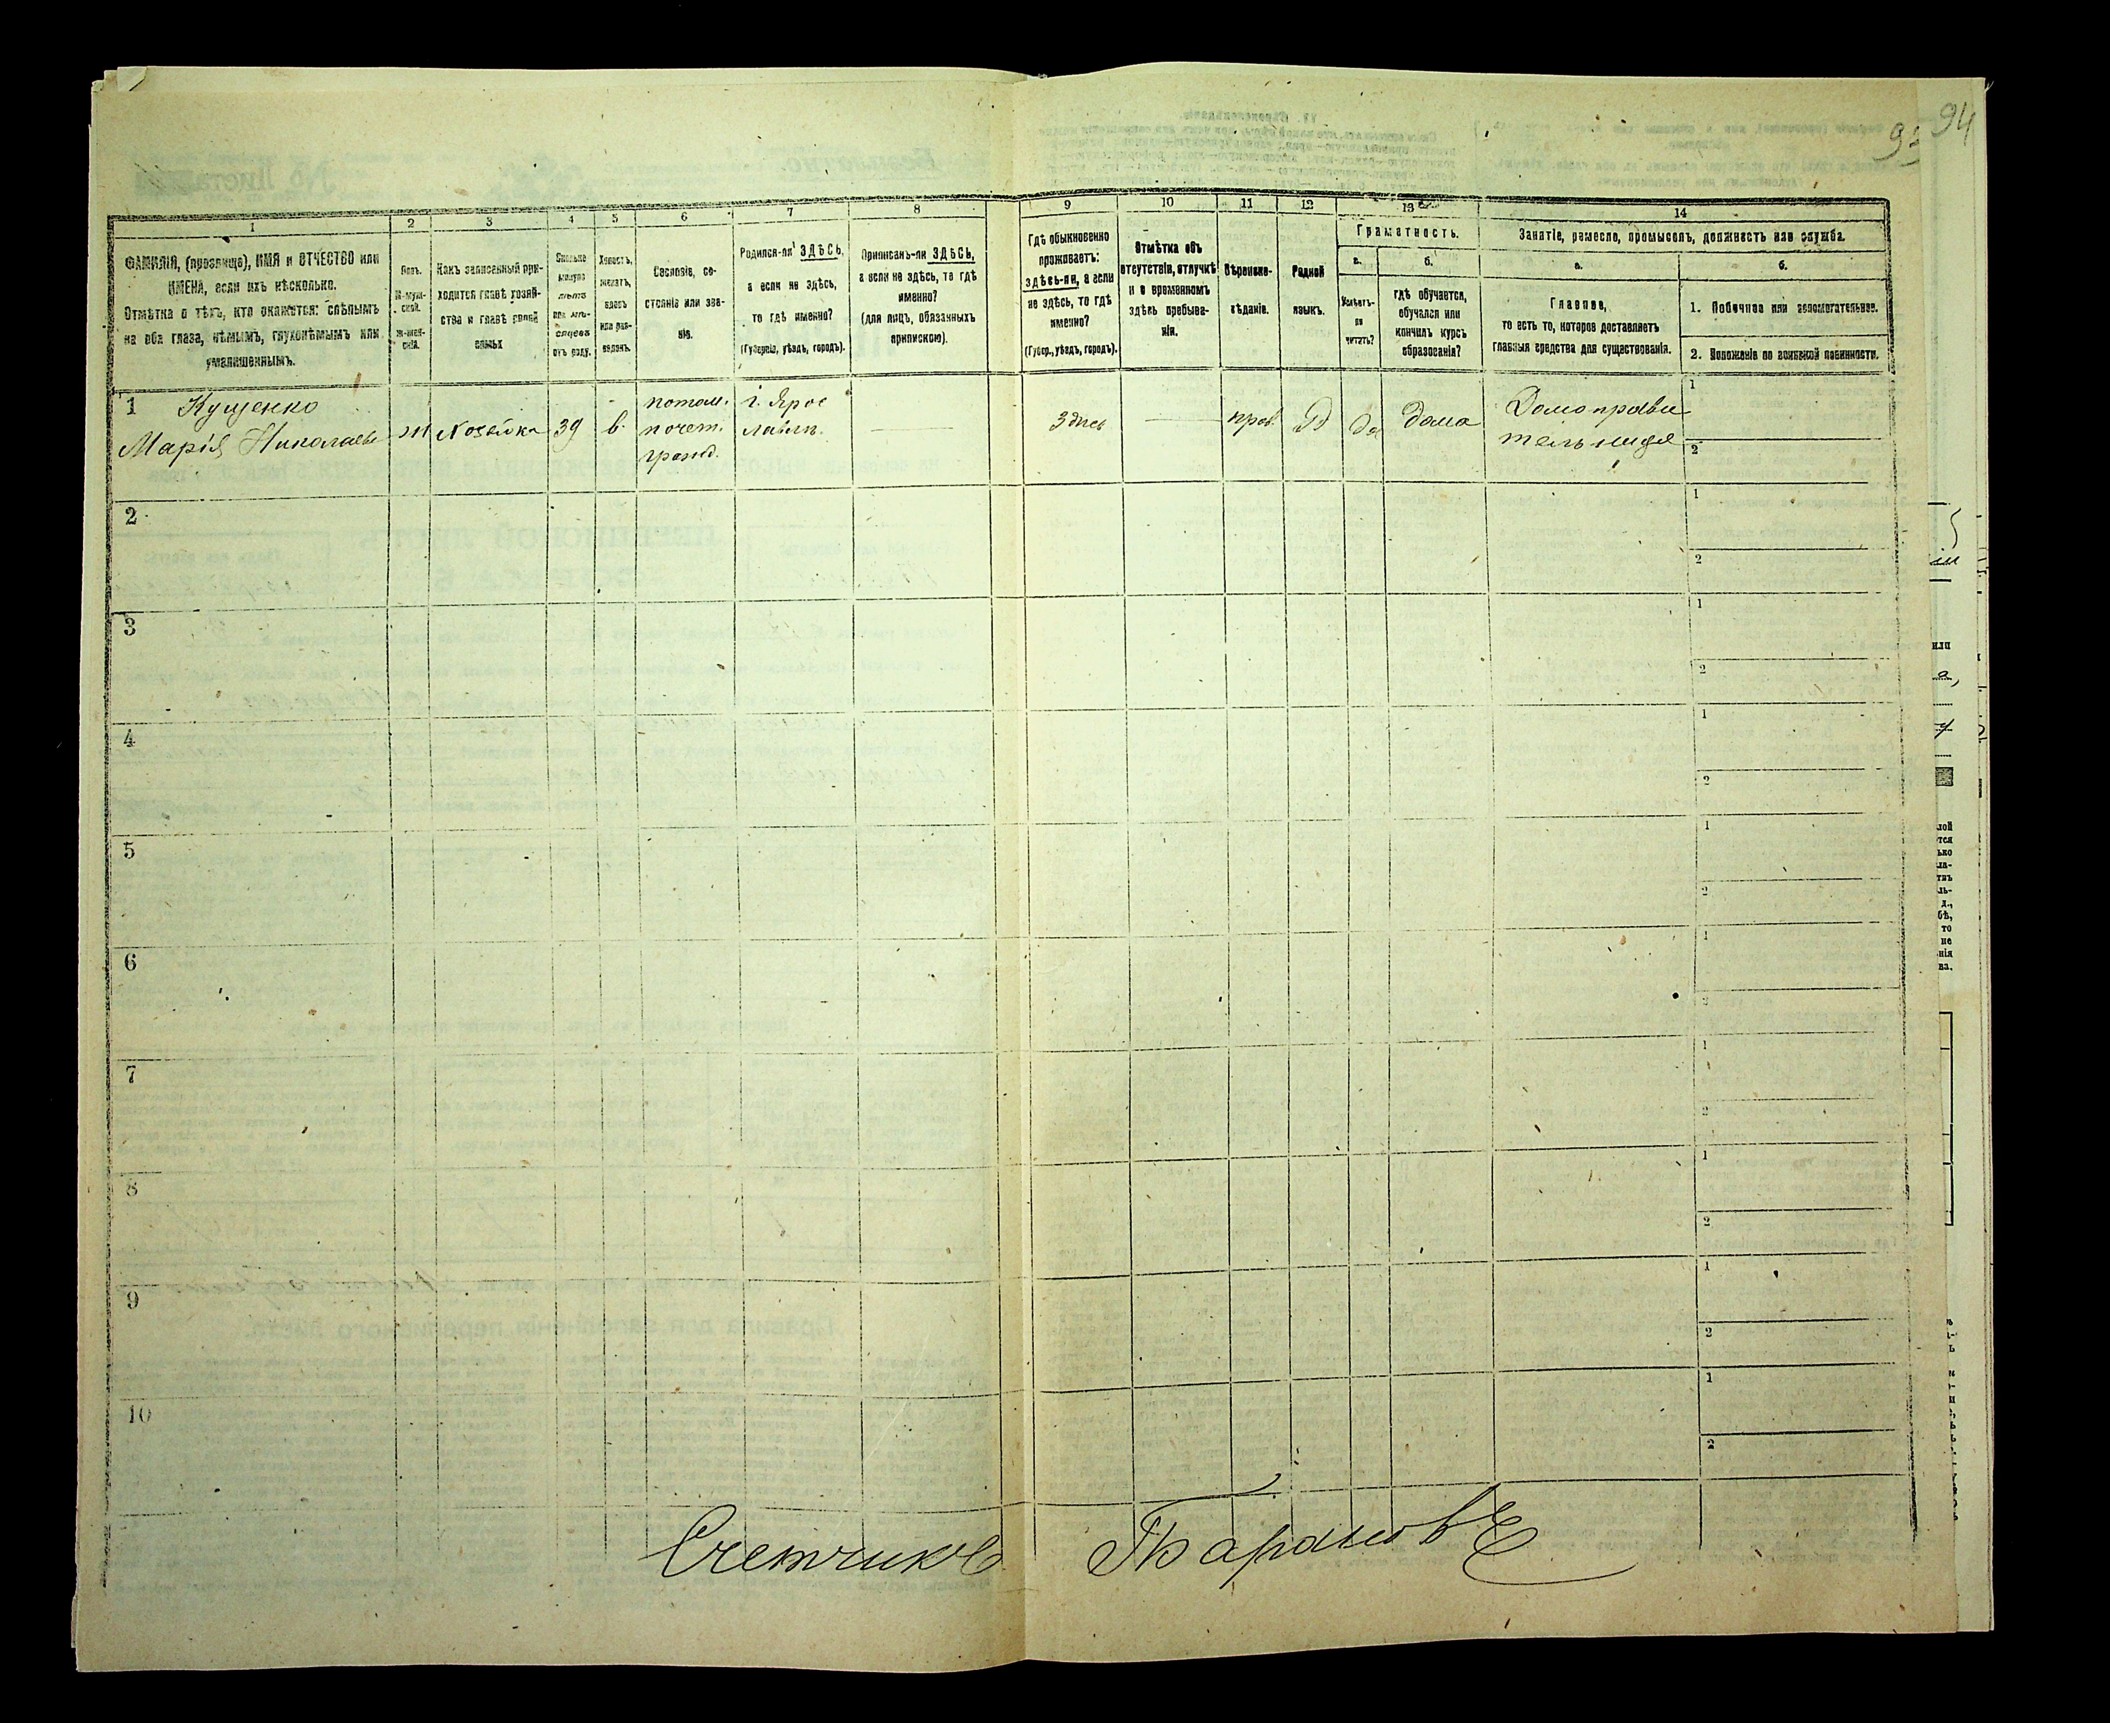 94
1
2
3
4
5
6
7
8
9
10
11
12
13
14
ФАМИЛІЯ, (прозвище), ИМЯ и ОТЧЕСТВО или
ИМЕНА, если ихъ нѣсколько.
Отмѣтка о тѣхъ, кто окажется: слѣпымъ
на оба глаза, нѣмымъ, глухонѣмымъ или
умалишеннымъ.
Полъ.
М-муж-
ской.
Ж-жен-
скій.
Какъ записанный при-
ходится главѣ хозяй-
ства и главѣ своей
семьи
Сколько
минуло
лѣтъ
или мѣ-
сяцевъ
отъ роду.
Холостъ,
женатъ,
вдовъ
или раз-
веденъ.
Сословіе, со-
стояніе или зва-
ніе.
Родился-ли ЗДѢСЬ,
а если не здѣсь,
то гдѣ именно?
(Губернія, уѣздъ, городъ).
Приписанъ-ли ЗДѢСЬ,
а если не здѣсь, то гдѣ
именно?
(для лицъ, обязанныхъ
припискою).
Гдѣ обыкновенно
проживаетъ:
здѣсь-ли, а если
не здѣсь, то гдѣ
именно?
(Губер., уѣздъ, городъ).
Отмѣтка объ
отсутствіи, отлучкѣ
и о временномъ
здѣсь пребыва-
ніи.
Вѣроиспо-
вѣданіе.
Родной
языкъ.
Грамотность.
а.
б.
Умѣетъ-
ли
читать?
гдѣ обучается,
обучался или
кончилъ курсъ
образованія?
Занятіе, ремесло, промыселъ, должность или служба.
а.
б.
Главное,
то есть то, которое доставляетъ
главныя средства для существованія.
1. Побочное или вспомогательное.
2. Положеніе по воинской повинности.
1
Кущенко
Марія Николаевн
ж
хозяйка
39
в.
потом.
почет.
гражд.
г. Ярос
лавль.
здѣсь
прав.
Р
да
дома
Домоправи
тельница
1
2
2
1
2
3
1
2
4
1
2
5
1
2
6
1
2
7
1
2
8
1
2
9
1
2
10
1
2
Счетчикъ Барановъ